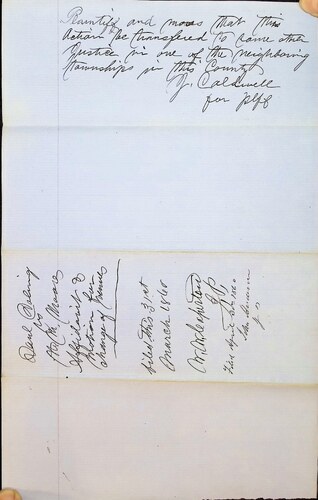 Plaintiff and moves that this
Action be transfered to some other
Justice in one of the neighboring
townships in this County
J. Caldwell
for plff
vs
Wm Moore
Affidavit &
Motion for
change of Venue
filed this 31st
March 1860
J P
Filed April
J. P.